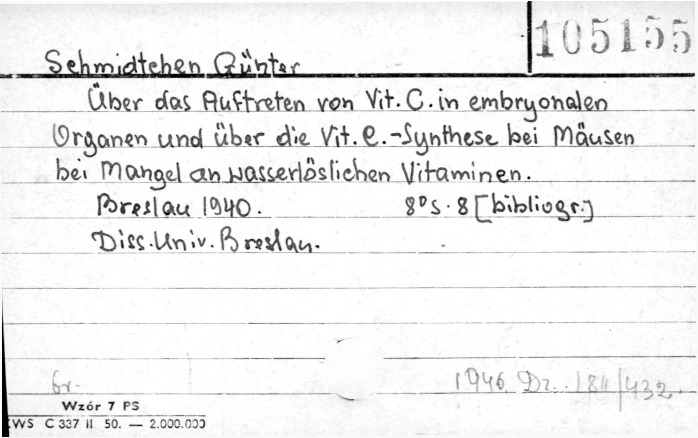 105155
Schmidtchen Günter
Über das Auftreten von Vit. C. in embryonalen
Organen und über die Vit. C.-Synthese bei Mäusen
bei Mangel an wasserlöslichen Vitaminen.
Breslau 1940. 8° s. 8 [bibliogr.]
Diss. Univ. Breslau.
1946 Dr.
432
Wzór 7 PS
C 337 II 50. — 2.000.000